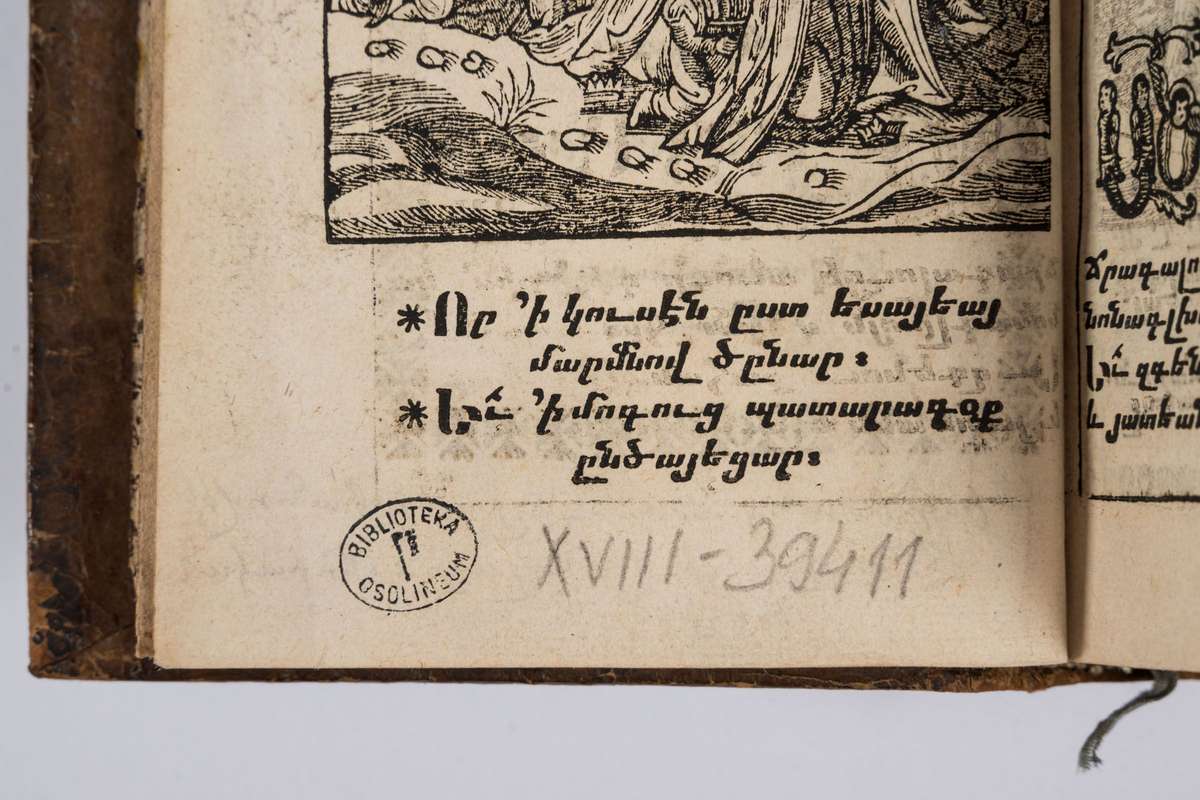 * Որ ՚ի կուսէն ըստ եսայեայ
մարմնով ծընար։
* Եւ ՚ի մոգուց պատարագօք
ընծայեցար։
BIBLIOTEKA
OSOLINEUM
XVIII-39411
Ճրագալու
և յատեա